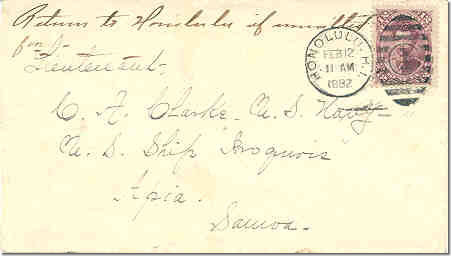 Return to Honolulu if uncalled
for
Lieutenant,
C. A. Clarke U. S. Navy
U. S. Ship "Iroquois"
Apia.
Samoa.
HONOLULU H.I.
FEB 12
11 AM
1892